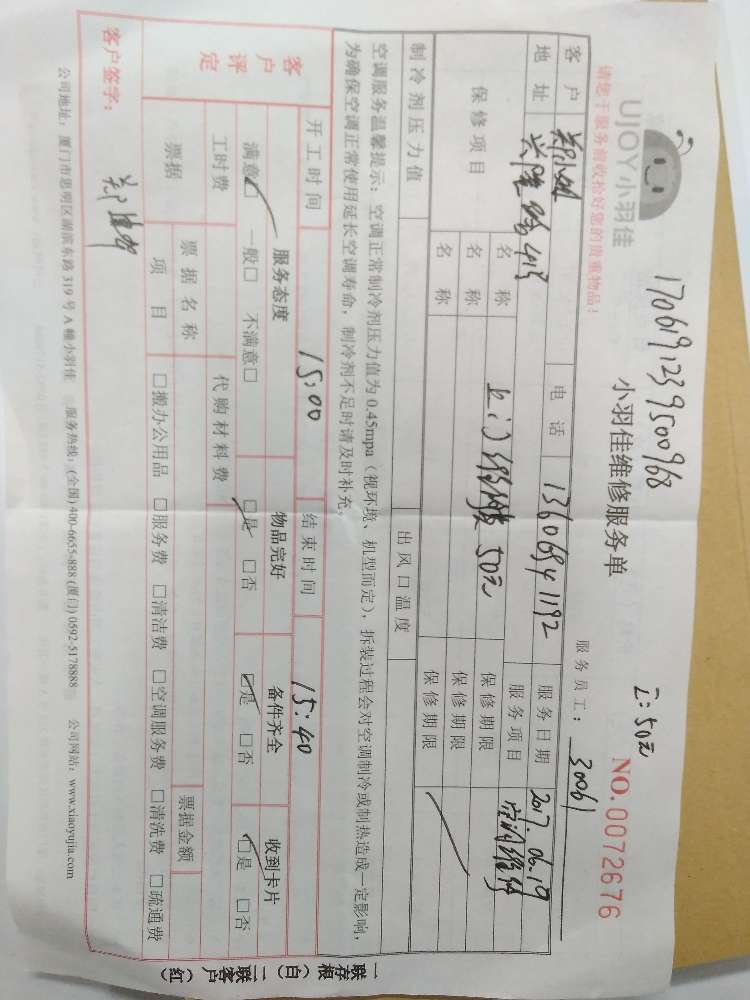 170619123950 0968
Σ:50元
UJOY小羽佳
小羽佳维修服务单
NO.0072676
请您于服务前收拾好您的贵重物品!
服务员工: 30061
客户
电话 13606941192 服务日期 2017.06.19
地址 413 服务项目 空调维修
保修项目 名称 上门 50元 保修期限
名称 保修期限
名称 保修期限
制冷剂压力值 出风口温度
空调服务温馨提示: 空调正常制冷剂压力值为0.45mpa(视环境、机型而定), 拆装过程会对空调制冷或制热造成一定影响,
为确保空调正常使用延长空调寿命, 制冷剂不足时请及时补充。
开工时间 15:00 结束时间 15:40
客户评定 服务态度 物品完好 备件齐全 收到卡片
满意☑ 一般□ 不满意□ ☑是 □否 ☑是 □否 ☑是 □否
工时费 代购材料费
票据 票据名称 票据金额
项目 □搬办公用品 □服务费 □清洁费 □空调服务费 □清洗费 □疏通费
客户签字:
公司地址: 厦门市思明区湖滨东路319号A幢小羽佳 服务热线: (全国) 400-6655-888 (厦门) 0592-5178888 公司网站: www.xiaoyujia.com
一联存根(白) 二联客户(红)